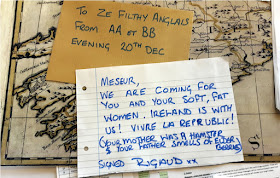 TO ZE FILTHY ANGLAIS
FROM AA ET BB
EVENING 20TH DEC
MESEUR,
WE ARE COMING FOR
YOU AND YOUR SOFT, FAT
WOMEN. IRELAND IS WITH
US! VIVRE LA REPRUBLIC!
(YOUR MOTHER WAS A HAMSTER
& YOUR FATHER SMELLS OF ELDER-
BERRIES)
SIGNED RIGAUD xx